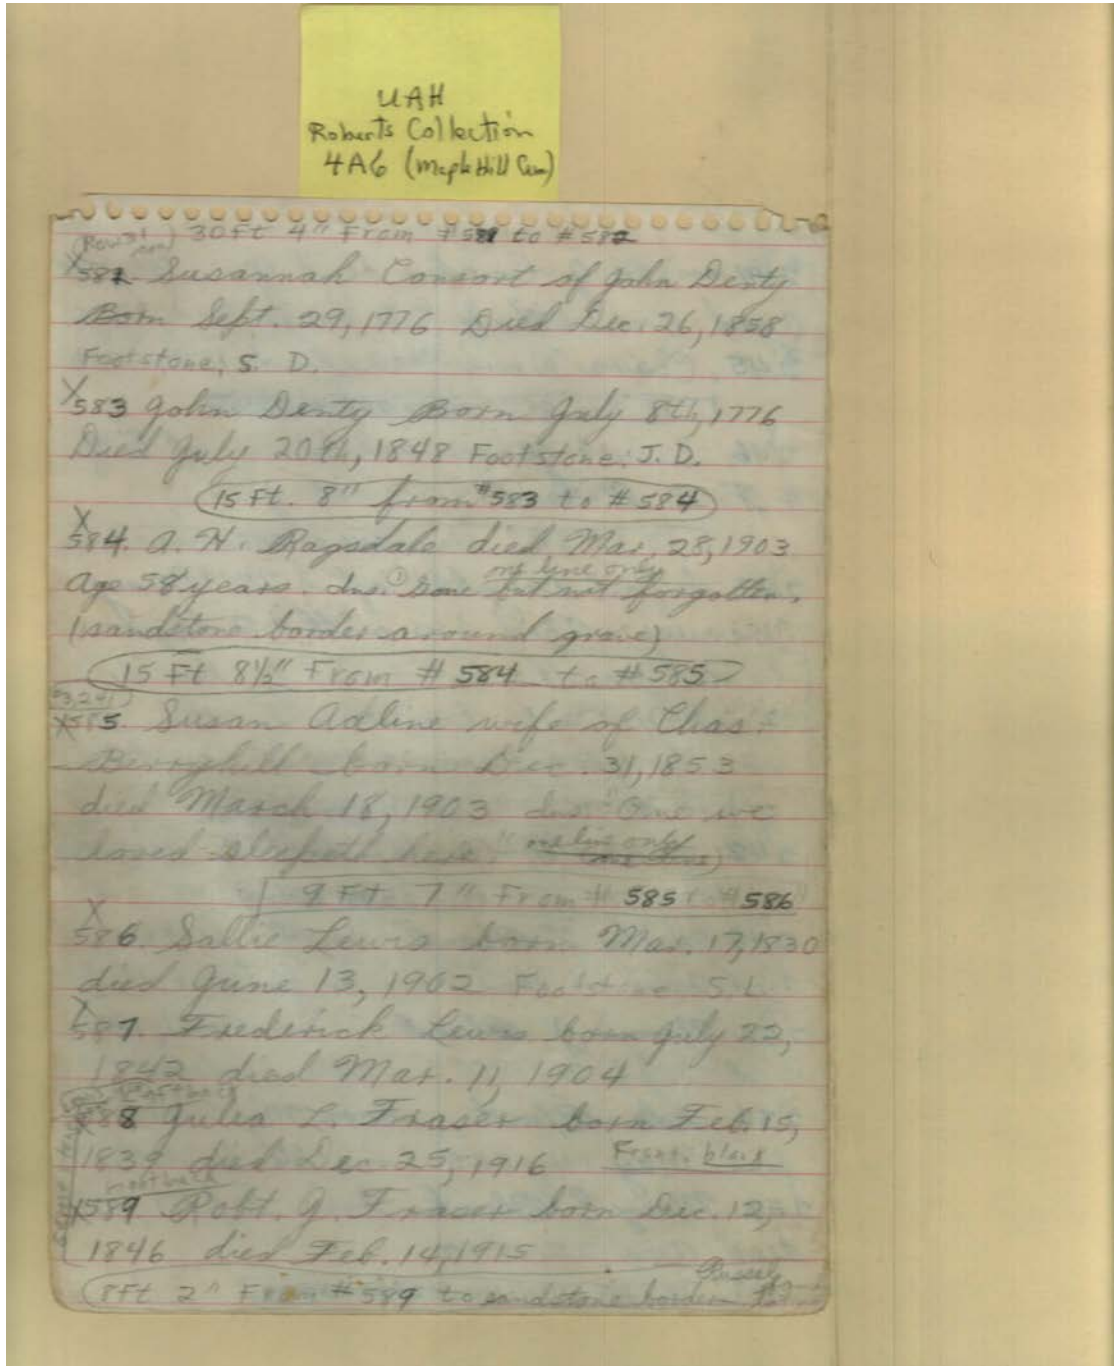 UAH
Roberts Collection
4A6 (Maple Hill Cem)
30 Ft 4" From #581 to #582
582. Susannah Consort of John Denty
Born Sept. 29, 1776 Died Dec. 26, 1858
Footstone: S. D.
X583 John Denty Born July 8th, 1776
Died July 20th, 1848 Footstone: J. D.
15 Ft. 8" from #583 to #584
X
584. A. H. Ragsdale died Mar. 28, 1903
one line only
age 58 years. Ins. Gone but not forgotten.
(sandstone border around grave)
15 Ft 8½" From #584 to #585
X585. Susan Adline wife of Chas.
Berryhill born Dec. 31, 1853
died March 18, 1903 Ins. "One we
loved sleepeth here." one line only
9 Ft 7" From #585 #586
X
586. Sallie Lewis born Mar. 17, 1830
died June 13, 1902 Footstone S.L.
X
587. Frederick Lewis born July 22,
1842 died Mar. 11, 1904
588 Julia L. Fraser born Feb. 15,
1839 died Dec 25, 1916 Front: blank
X589 Robt. J. Fraser born Dec. 12,
1846 died Feb. 14, 1915
8 Ft 2" From #589 to sandstone border